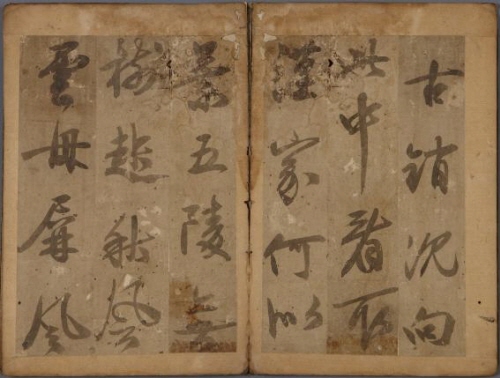 古銷沈向
此中看取
漢家何似
業五陵無
樹起秋風
雲母屏風